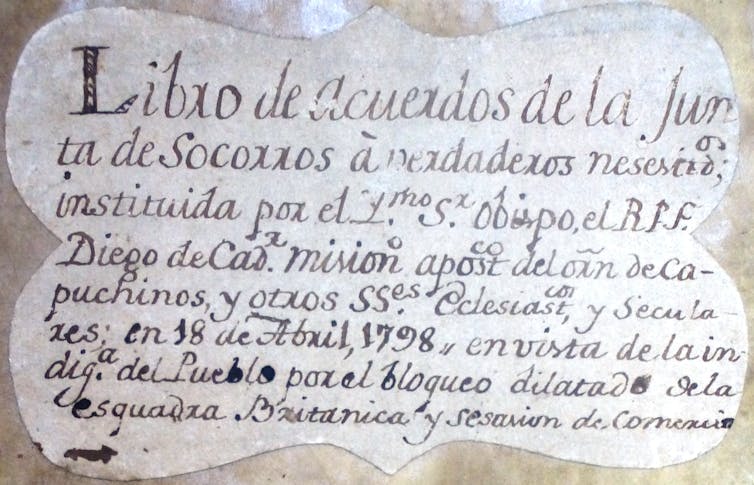 Libro de acuerdos de la Jun
ta de Socorros à verdaderos nesesitdos;
instituida por el Ymo. Sr. Obispo, el R.P.F.
Diego de Cadx. misiono apostco del orn de Ca-
puchinos, y otros SSes. Eclesiastcos, y Secula-
res; en 18 de Abril, 1798,, en vista de la in
diga. del Pueblo por el bloqueo dilatado de la
esquadra Britanica y sesasion de Comercio